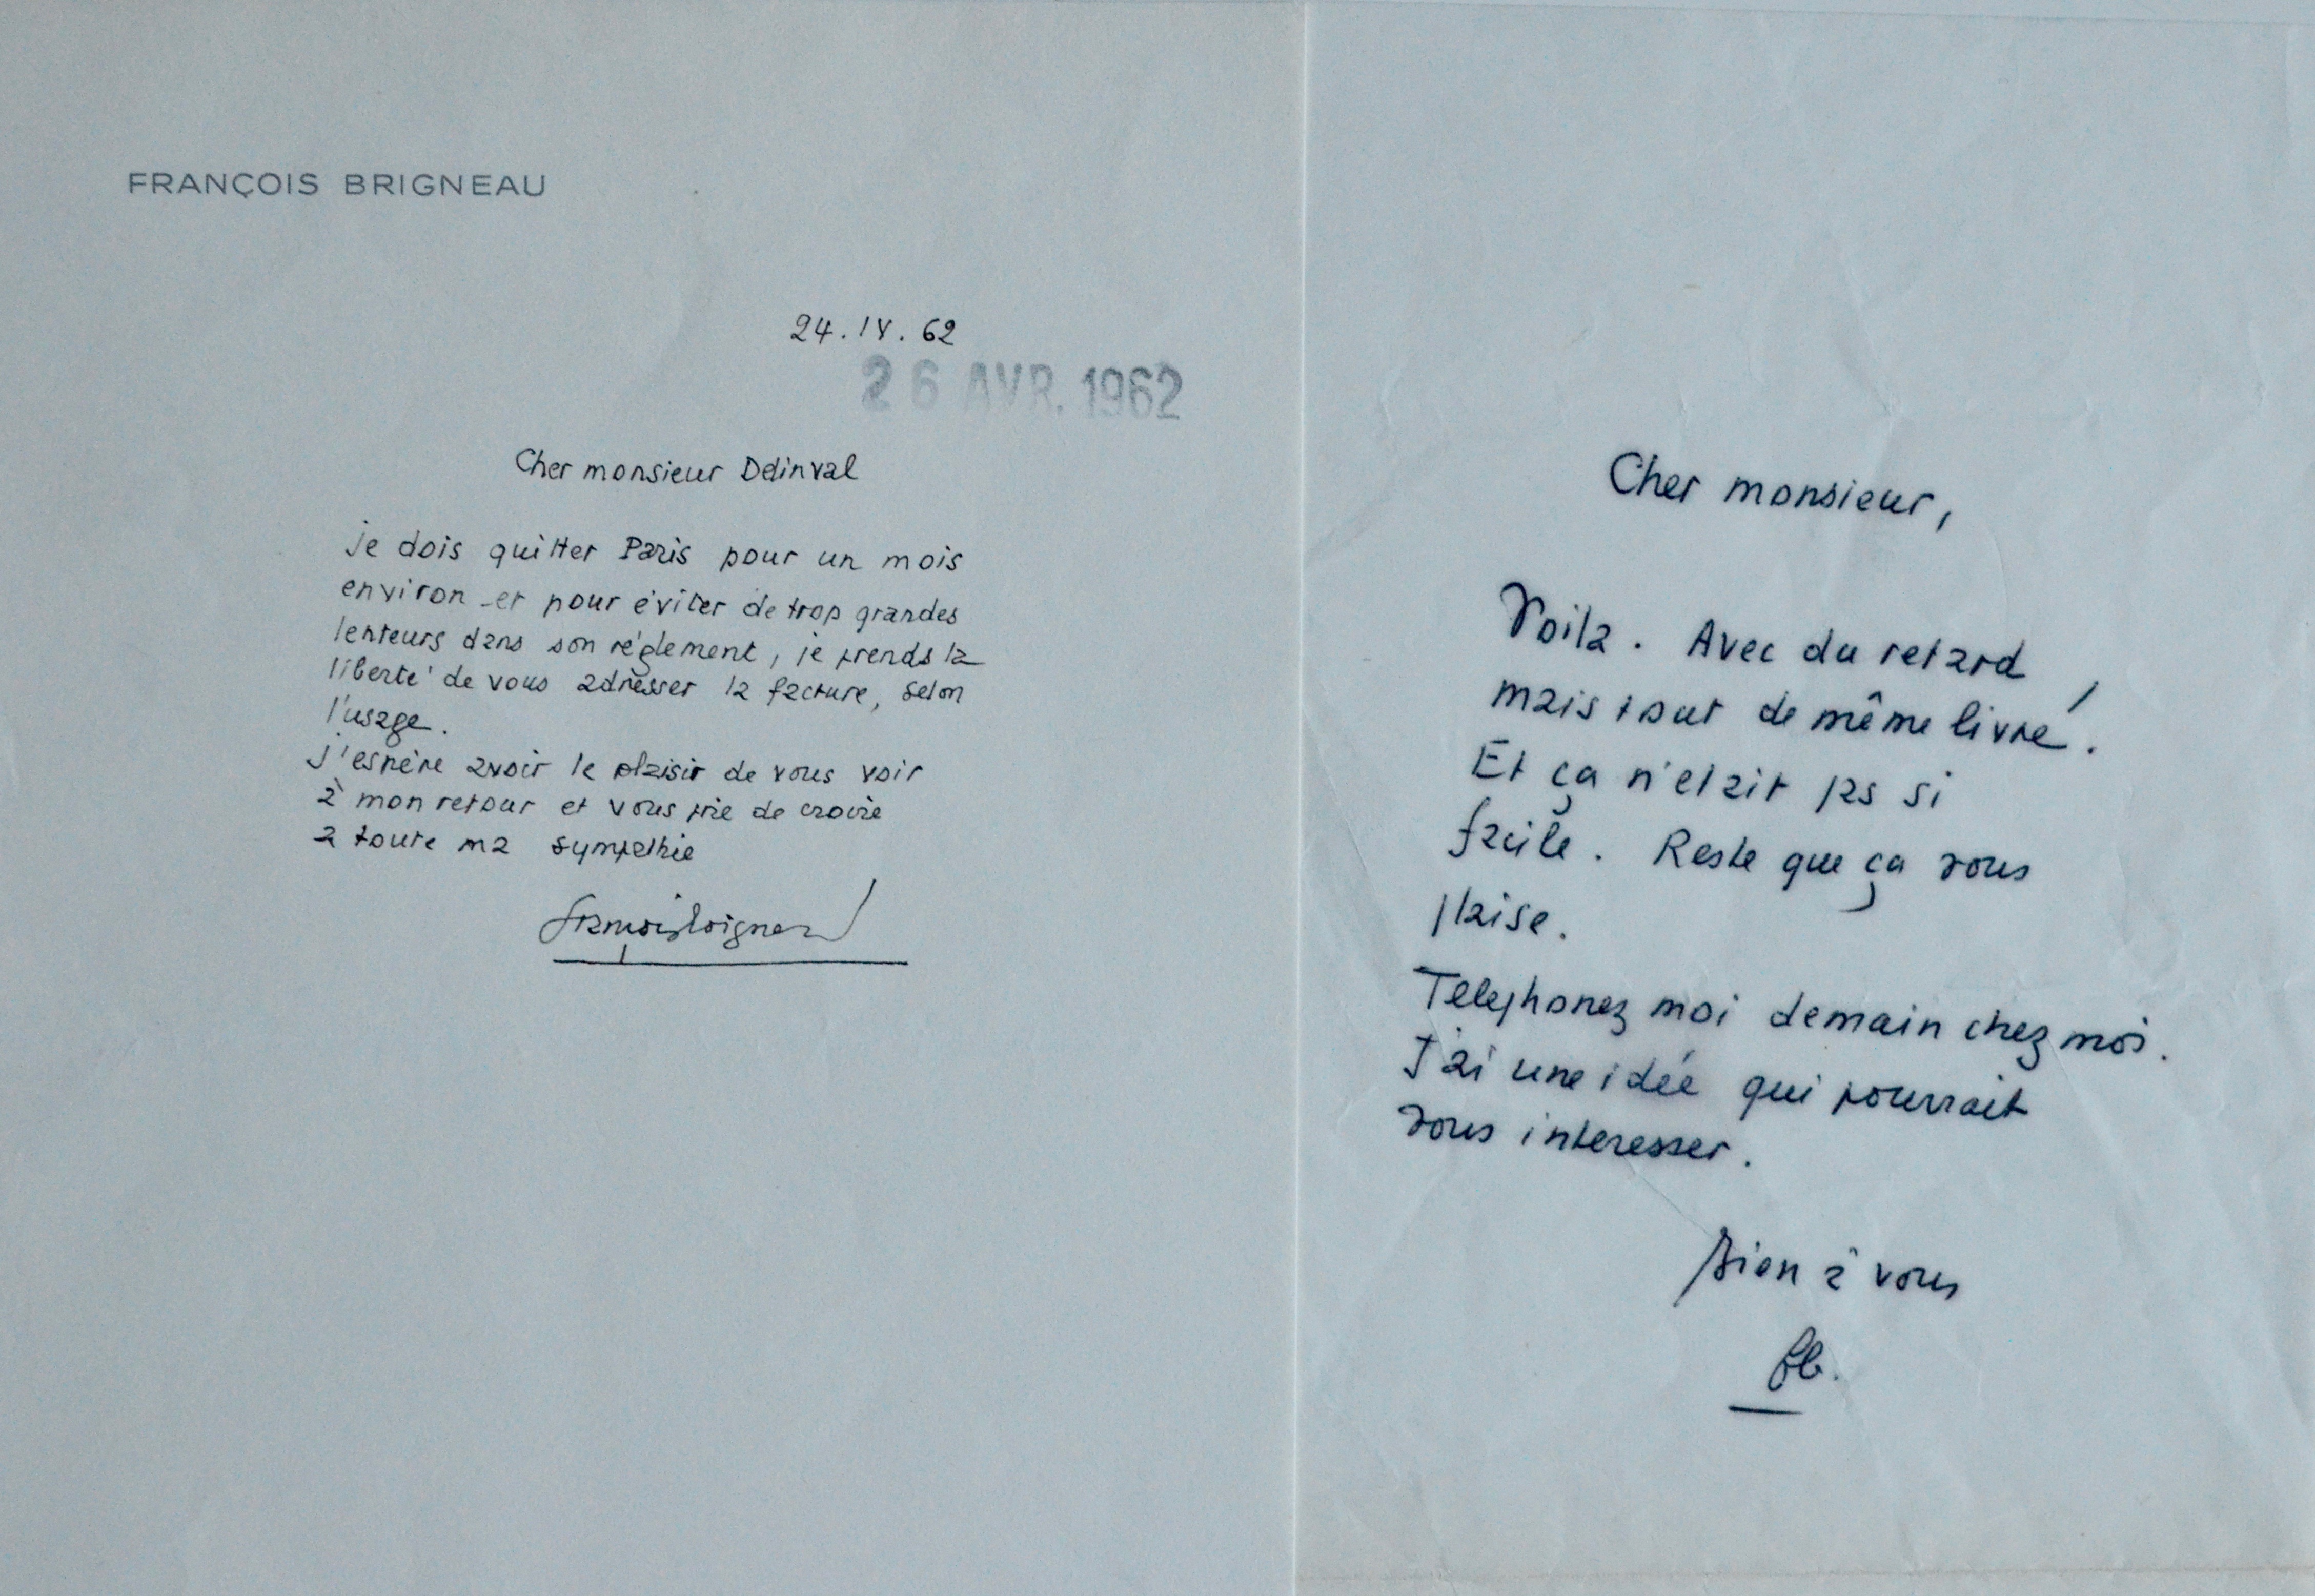 FRANÇOIS BRIGNEAU
24.IV.62
26 AVR. 1962
Cher monsieur Delinval
je dois quitter Paris pour un mois
environ et pour éviter de trop grandes
lenteurs dans son réglement, je prends la
liberté de vous adresser la facture, selon
l'usage.
j'espère avoir le plaisir de vous voir
à mon retour et vous prie de croire
a toute ma sympathie
François Brigneau
Cher monsieur,
Voila. Avec du retard
mais tout de même livré.
Et ça n'etait pas si
facile. Reste que ça vous
plaise.
Telephonez moi demain chez moi.
J'ai une idée qui pourrait
vous interesser.
Bien à vous
fb.